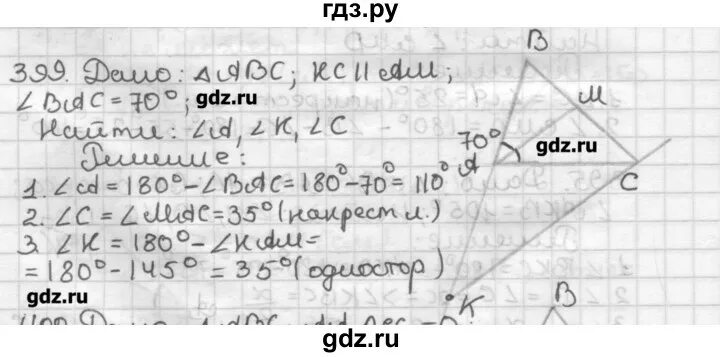 гдз.ру
399. Дано: △ABC; KC || AM;
∠BAC = 70°; gdz.ru
Найти: ∠A, ∠K, ∠C
Решение:
1. ∠A = 180° - ∠BAC = 180° - 70° = 110°
2. ∠C = ∠MAC = 35° (накрест л.)
3. ∠K = 180° - ∠KAM =
= 180° - 145° = 35° (одностор)
gdz.ru
B
M
70°
gdz.ru
A
C
K
B